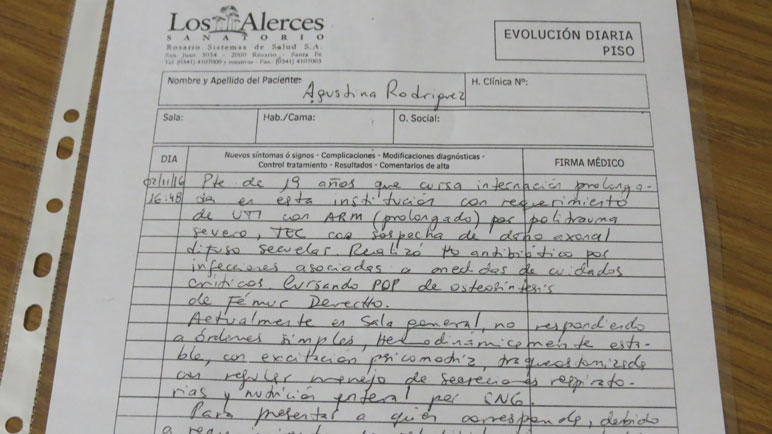 Los Alerces
SANATORIO
Rosario Sistemas de Salud S.A.
San Juan 3034 - 2000 Rosario - Santa Fe
EVOLUCIÓN DIARIA
PISO
Nombre y Apellido del Paciente: Agustina Rodriguez
H. Clínica Nº:
Sala:
Hab./Cama:
O. Social:
DIA
Nuevos síntomas ó signos - Complicaciones - Modificaciones diagnósticas -
Control tratamiento - Resultados - Comentarios de alta
FIRMA MÉDICO
02/11/16 Pte de 19 años que cursa internación prolonga-
16:48 da en esta institución con requerimiento
de UTI con ARM (prolongado) por politrauma
severo, TEC con sospecha de daño axonal
difuso secuelar. Realizó tto antibiótico por
infecciones asociadas a medidas de cuidados
críticos. Cursando POP de osteosíntesis
de Fémur Derecho.
Actualmente en Sala general, no respondiendo
a órdenes simples, hemodinámicamente esta-
ble, con excitación psicomotriz, traqueostomizada
con regular manejo de secreciones respirato-
rias y nutrición enteral por SNG.
Para presentar a quien corresponda, debido
a